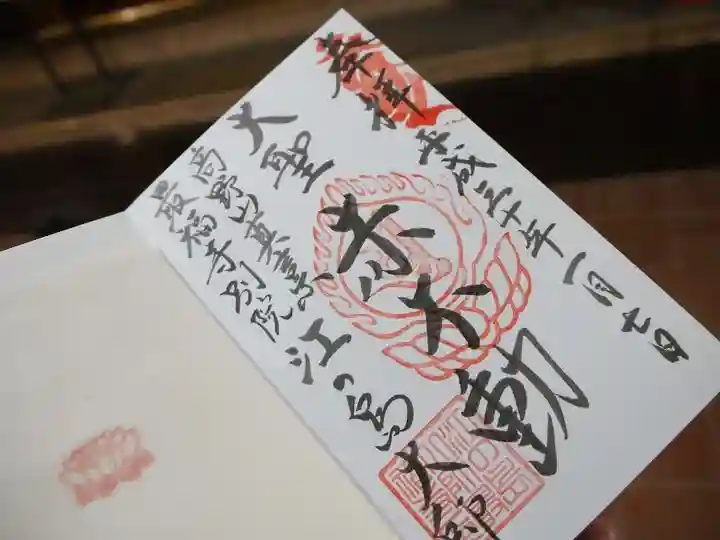 奉拝
平成三十年一月七日
大聖赤不動
高野山真言宗
最福寺別院
江の島大師